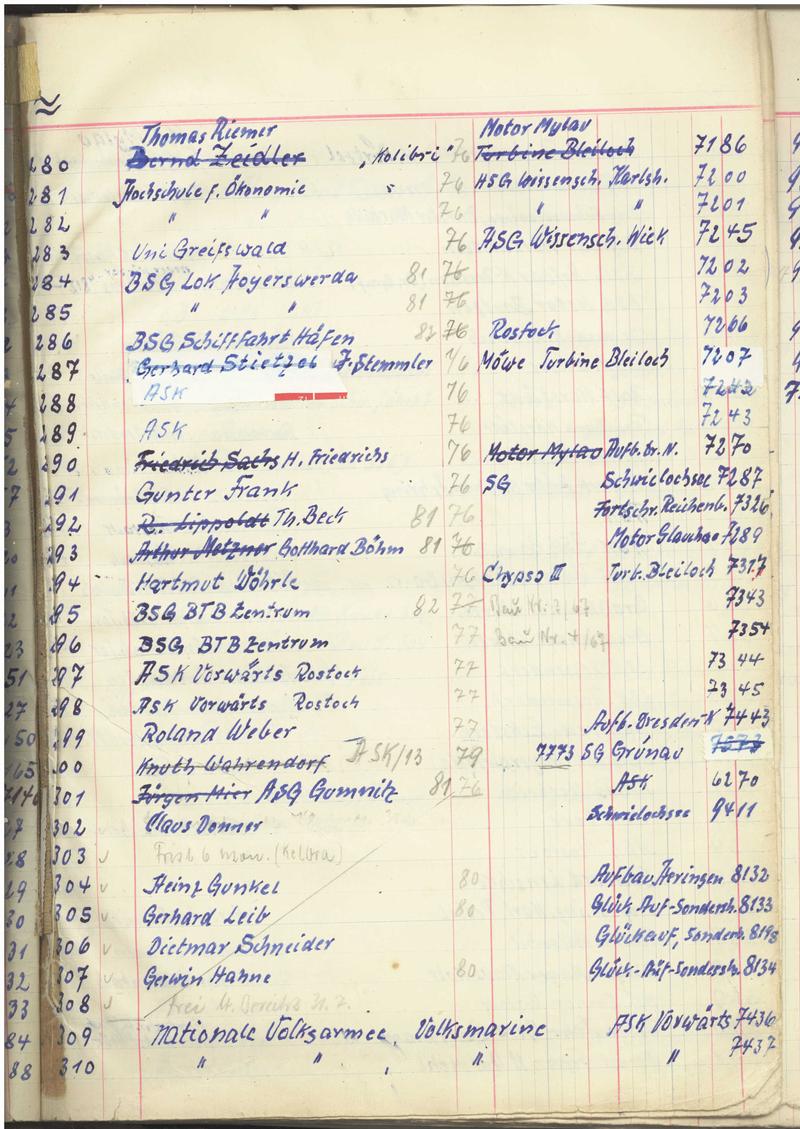 Thomas Riemer Motor Mylau
280 Bernd Zeidler „Kolibri" 76 Turbine Bleiloch 7186
281 Hochschule f. Ökonomie " 76 HSG Wissensch. Karlsh. 7200
282 " " 76 " " 7201
283 Uni Greifswald 76 ASG Wissensch. Wiek 7245
284 BSG Lok Hoyerswerda 81 76 7202
285 " " 81 76 7203
286 BSG Schiffahrt Häfen 82 76 Rostock 7266
287 Gerhard Stietzel J. Stemmler 76 Möwe Turbine Bleiloch 7207
288 ASK 76 7242
289 ASK 76 7243
290 Friedrich Sachs H. Friedrichs 76 Motor Mylau Aufb. Dr. N. 7270
291 Gunter Frank 76 SG Schwielochsee 7287
292 R. Lippoldt Th. Beck 81 76 Fortschr. Reichenb. 7326
293 Arthur Metzner Gotthard Böhm 81 76 Motor Glauchau 7289
294 Hartmut Wöhrle 76 Chypso III Turb. Bleiloch 7317
295 BSG BTB Zentrum 82 77 Bau Nr. 2/67 7343
296 BSG BTB Zentrum 77 Bau Nr. 4/67 7354
297 ASK Vorwärts Rostock 77 7344
298 ASK Vorwärts Rostock 77 7345
299 Roland Weber 77 Aufb. Dresden N 7443
300 Knuth Wahrendorf ASK/13 79 7773 SG Grünau 7573
301 Jürgen Mier ASG Gumnitz 81 76 ASK 6270
302 Claus Donner Schwielochsee 9411
303 Frist 6 mon. (Kelbra)
304 Heinz Gunkel 80 Aufbau Heringen 8132
305 Gerhard Leib 80 Glück Auf-Sondersh. 8133
306 Dietmar Schneider Glückauf, Sondersh. 8198
307 Gerwin Hahne 80 Glück-Auf-Sonderst. 8134
308 frei
309 Nationale Volksarmee, Volksmarine ASK Vorwärts 7436
310 " " " " 7437